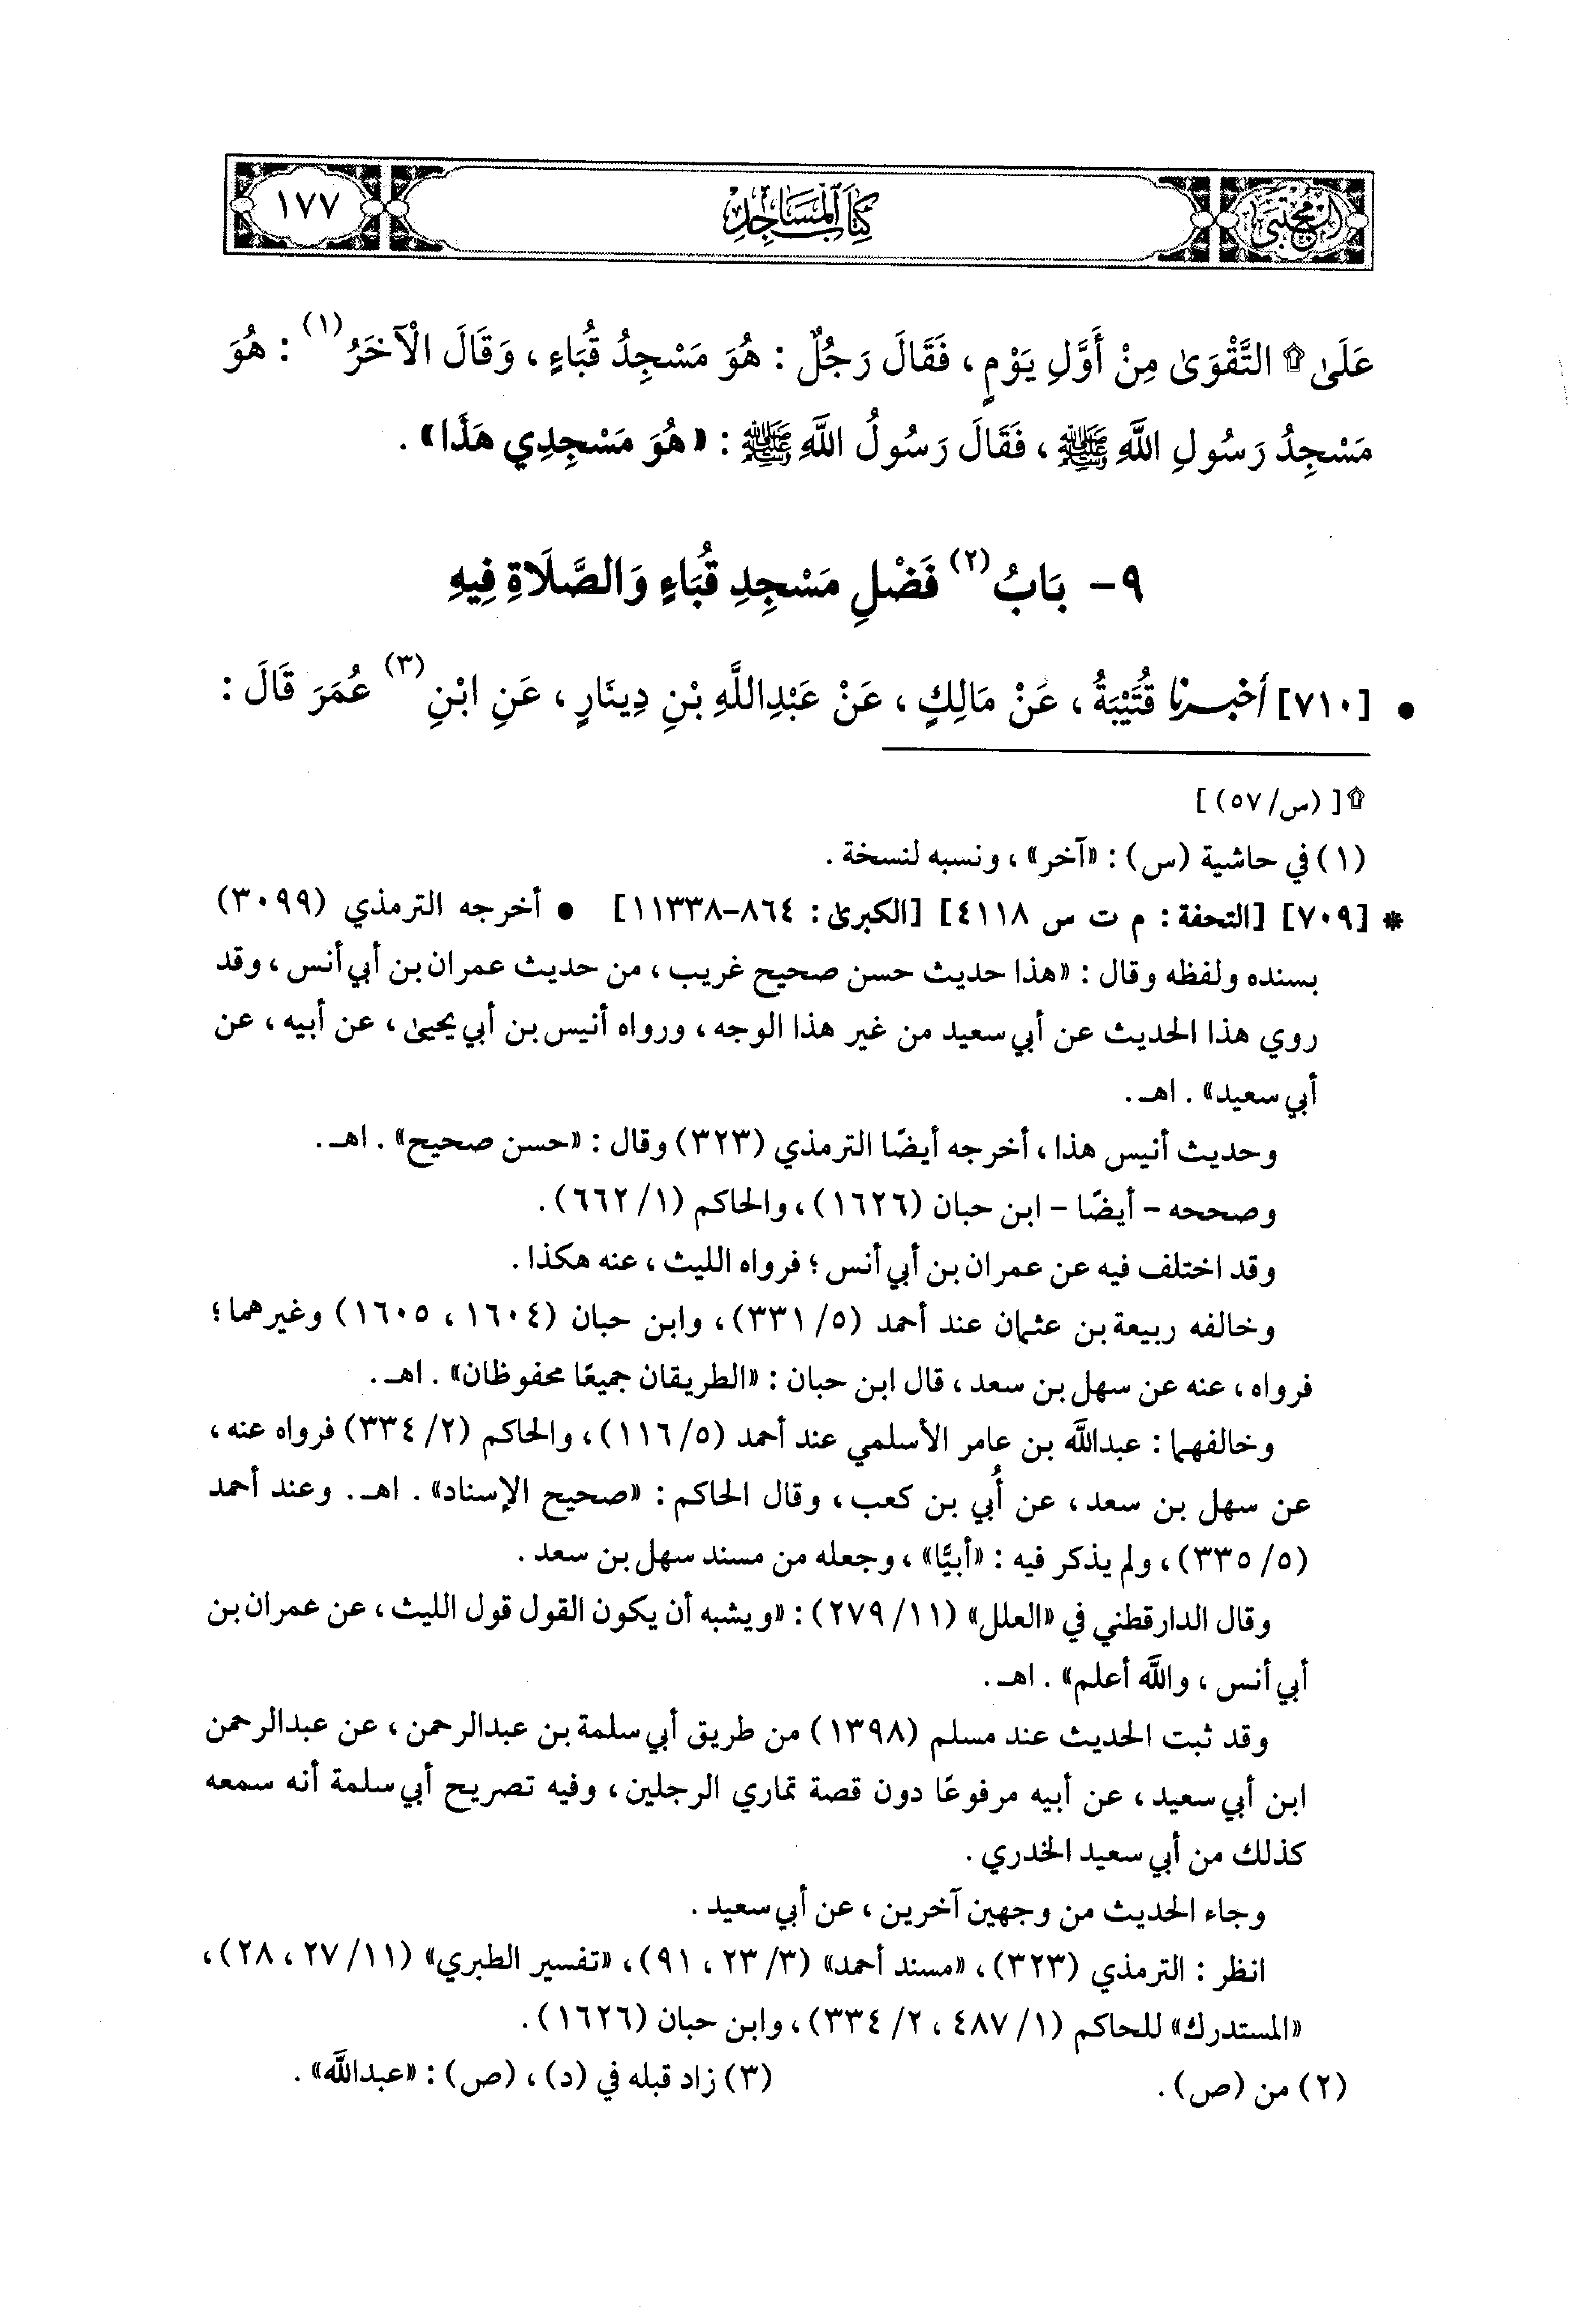 المجتبى
كتاب المساجد
١٧٧
عَلَى ۩ التَّقْوَىٰ مِنْ أَوَّلِ يَوْمٍ ، فَقَالَ رَجُلٌ : هُوَ مَسْجِدُ قُبَاءٍ ، وَقَالَ الْآخَرُ(١) : هُوَ
مَسْجِدُ رَسُولِ اللَّهِ ﷺ ، فَقَالَ رَسُولُ اللَّهِ ﷺ : «هُوَ مَسْجِدِي هَذَا» .
٩- بَابُ(٢) فَضْلِ مَسْجِدِ قُبَاءٍ وَالصَّلَاةِ فِيهِ
• [٧١٠] أخبرنا قُتَيْبَةُ ، عَنْ مَالِكٍ ، عَنْ عَبْدِاللَّهِ بْنِ دِينَارٍ ، عَنِ ابْنِ(٣) عُمَرَ قَالَ :
۩ [ (س/ ٥٧) ]
(١) في حاشية (س) : «آخر» ، ونسبه لنسخة .
* [٧٠٩] [التحفة : م ت س ٤١١٨] [الكبرىٰ : ٨٦٤-١١٣٣٨] • أخرجه الترمذي (٣٠٩٩)
بسنده ولفظه وقال : «هذا حديث حسن صحيح غريب ، من حديث عمران بن أبي أنس ، وقد
روي هذا الحديث عن أبي سعيد من غير هذا الوجه ، ورواه أنيس بن أبي يحيىٰ ، عن أبيه ، عن
أبي سعيد» . اهـ .
وحديث أنيس هذا ، أخرجه أيضًا الترمذي (٣٢٣) وقال : «حسن صحيح» . اهـ .
وصححه - أيضًا - ابن حبان (١٦٢٦) ، والحاكم (١/ ٦٦٢) .
وقد اختلف فيه عن عمران بن أبي أنس ؛ فرواه الليث ، عنه هكذا .
وخالفه ربيعة بن عثمان عند أحمد (٥/ ٣٣١) ، وابن حبان (١٦٠٤ ، ١٦٠٥) وغيرهما ؛
فرواه ، عنه عن سهل بن سعد ، قال ابن حبان : «الطريقان جميعًا محفوظان» . اهـ .
وخالفهما : عبداللَّه بن عامر الأسلمي عند أحمد (٥/ ١١٦) ، والحاكم (٢/ ٣٣٤) فرواه عنه ،
عن سهل بن سعد ، عن أُبي بن كعب ، وقال الحاكم : «صحيح الإسناد» . اهـ . وعند أحمد
(٥/ ٣٣٥) ، ولم يذكر فيه : «أبيًّا» ، وجعله من مسند سهل بن سعد .
وقال الدارقطني في «العلل» (١١/ ٢٧٩) : «ويشبه أن يكون القول قول الليث ، عن عمران بن
أبي أنس ، واللَّه أعلم» . اهـ .
وقد ثبت الحديث عند مسلم (١٣٩٨) من طريق أبي سلمة بن عبدالرحمن ، عن عبدالرحمن
ابن أبي سعيد ، عن أبيه مرفوعًا دون قصة تماري الرجلين ، وفيه تصريح أبي سلمة أنه سمعه
كذلك من أبي سعيد الخدري .
وجاء الحديث من وجهين آخرين ، عن أبي سعيد .
انظر : الترمذي (٣٢٣) ، «مسند أحمد» (٣/ ٢٣ ، ٩١) ، «تفسير الطبري» (١١/ ٢٧ ، ٢٨) ،
«المستدرك» للحاكم (١/ ٤٨٧ ، ٢/ ٣٣٤) ، وابن حبان (١٦٢٦) .
(٢) من (ص) .
(٣) زاد قبله في (د) ، (ص) : «عبداللَّه» .